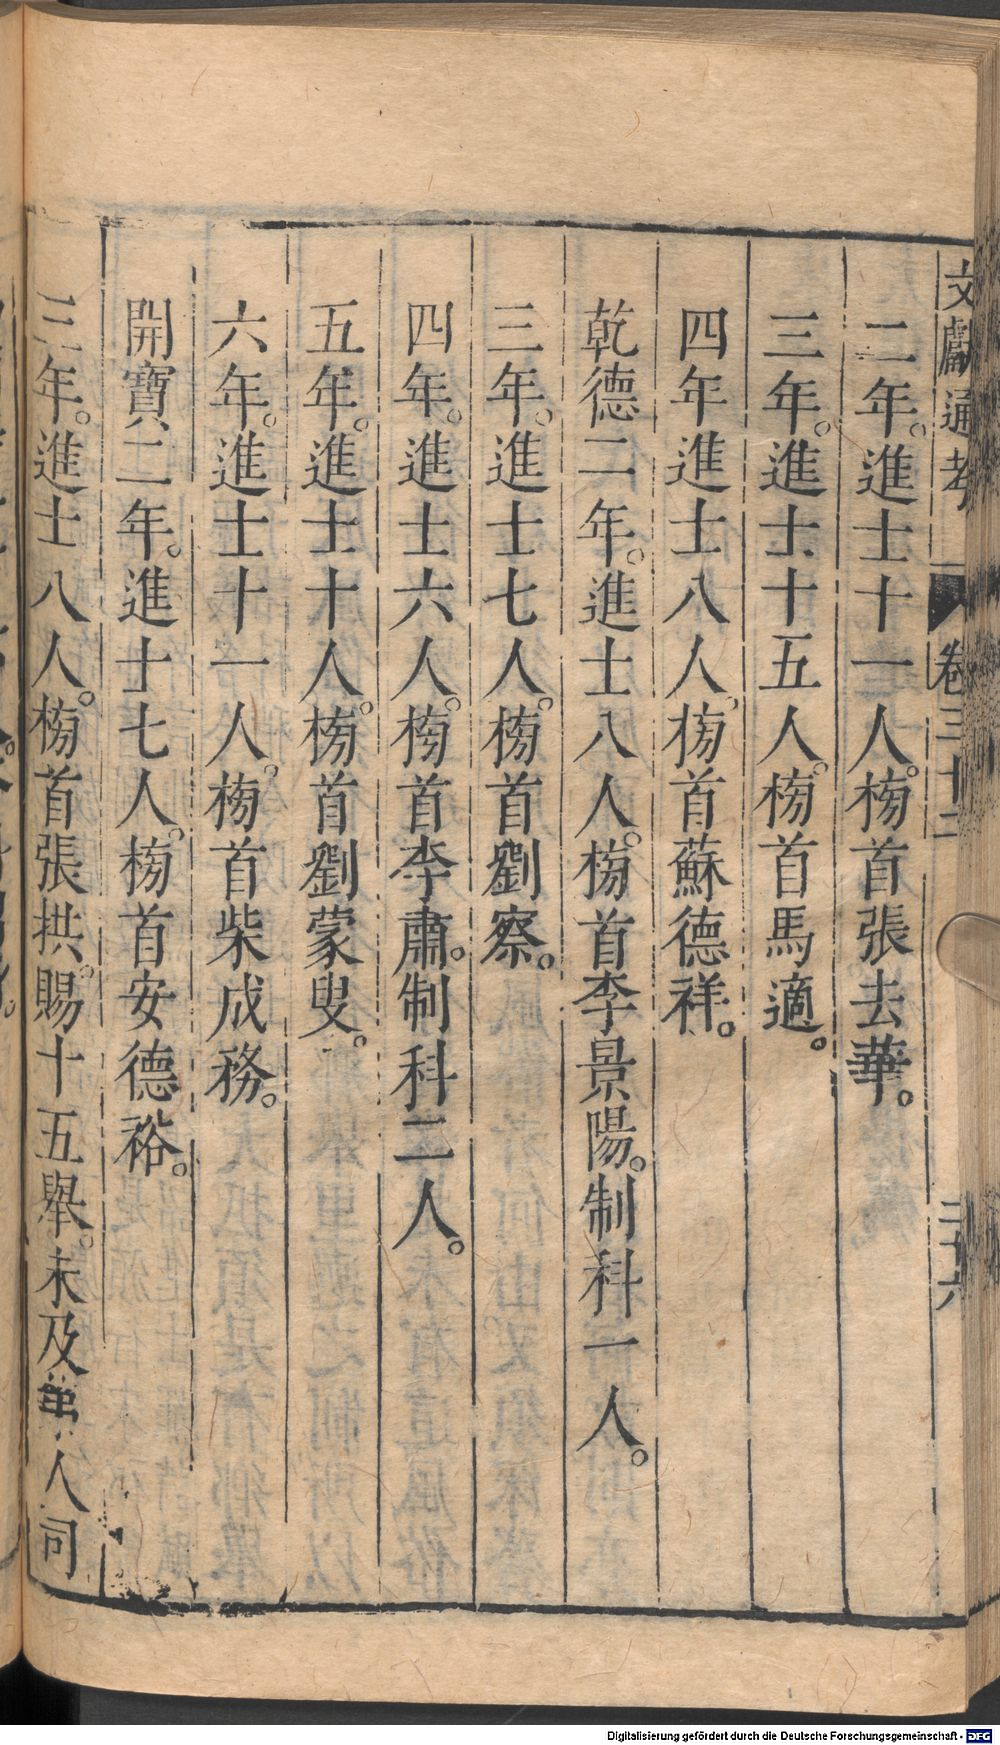 文獻通考 卷三十二 三十六
二年。進士十一人。榜首張去華。
三年。進士十五人。榜首馬適。
四年進士八人。榜首蘇德祥。
乾德二年。進士八人。榜首李景陽。制科一人。
三年。進士七人。榜首劉察。
四年。進士六人。榜首李肅。制科二人。
五年。進士十人。榜首劉蒙叟。
六年。進士十一人。榜首柴成務。
開寶二年。進士七人。榜首安德裕。
三年。進士八人。榜首張拱。賜十五舉。未及第人司
Digitalisierung gefördert durch die Deutsche Forschungsgemeinschaft - DFG